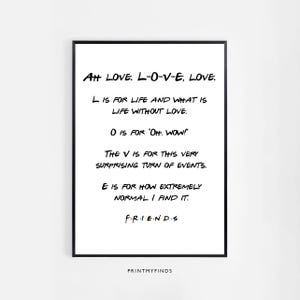 Ah love. L-O-V-E, love.
L is for life and what is
life without love.
O is for 'Oh, wow!'
The V is for this very
surprising turn of events.
E is for how extremely
normal I find it.
F·R·I·E·N·D·S
PRINTMYFINDS